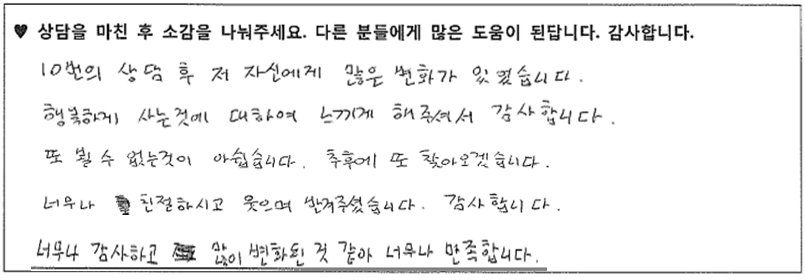 ♥ 상담을 마친 후 소감을 나눠주세요. 다른 분들에게 많은 도움이 된답니다. 감사합니다.
10번의 상담 후 저 자신에게 많은 변화가 있었습니다.
행복하게 사는것에 대하여 느끼게 해주셔서 감사합니다.
또 뵐 수 없는것이 아쉽습니다. 추후에 또 찾아오겠습니다.
너무나 친절하시고 웃으며 반겨주셨습니다. 감사합니다.
너무나 감사하고 많이 변화된 것 같아 너무나 만족합니다.